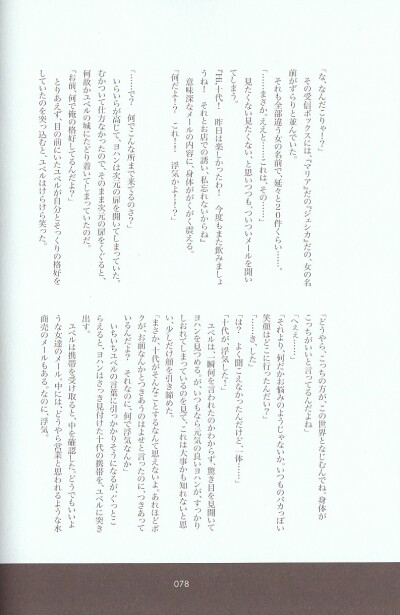 「な、なんだこりゃー?」
その受信ボックスには、『マリア』だの『ジェシカ』だの、女の名
前がずらりと並んでいた。
それも全部違う女の名前で、延々と20件くらい……。
「……まさか、ええと……これは、その……」
見たくない見たくない、と思いつつも、ついついメールを開い
てしまう。
『Hi、十代! 昨日は楽しかったわ! 今度もまた飲みましょ
うね! それとお店での誘い、私忘れないからね』
意味深なメールの内容に、身体ががくがく震える。
「何だよー!? これー!! 浮気かよー!?」
「……で? 何でこんな所まで来てるのさ?」
いらいらが高じて、ヨハンは次元の扉を開いてしまっていた。
むかついて仕方なかったので、そのまま次元の扉をくぐると、
何故かユベルの城にたどり着いてしまっていたのだ。
「お前、何で俺の格好してるんだよ?」
とりあえず、目の前にいたユベルが自分とそっくりの格好を
していたのを突っ込むと、ユベルはけらけら笑った。
「どうやら、こっちの方が、この世界となじむんでね。身体が
こっちがいいと言ってるんだよね」
「へぇえ……」
「それより、何だかお悩みのようじゃないか、いつものバカっぽい
笑顔はどこに行ったんだい?」
「……きした」
「は? よく聞こえなかったんだけど、一体……」
「十代が、浮気した!」
ユベルは、一瞬何を言われたのかわからず、驚き目を見開いて
ヨハンを見つめる。が、いつもなら元気の良いヨハンが、すっかり
しおれてしまっているのを見て、これは大事かも知れないと思
い、少しだけ顔を引き締めた。
「まさか、十代がそんなことするなんて思えないよ。あれほどボ
クが、お前なんかとつきあうのはよせと言ったのに、つきあって
いるんだよ? それなのに、何で浮気なんか」
いちいちユベルの言葉に引っかかりそうになるが、ぐっとこ
らえると、ヨハンはさっき見付けた十代の携帯を、ユベルに突き
出す。
ユベルは携帯を受け取ると、中を確認した。どうでもいいよ
うな女達のメール。中には、どうやら営業と思われるような水
商売のメールもある。なのに、浮気。
078